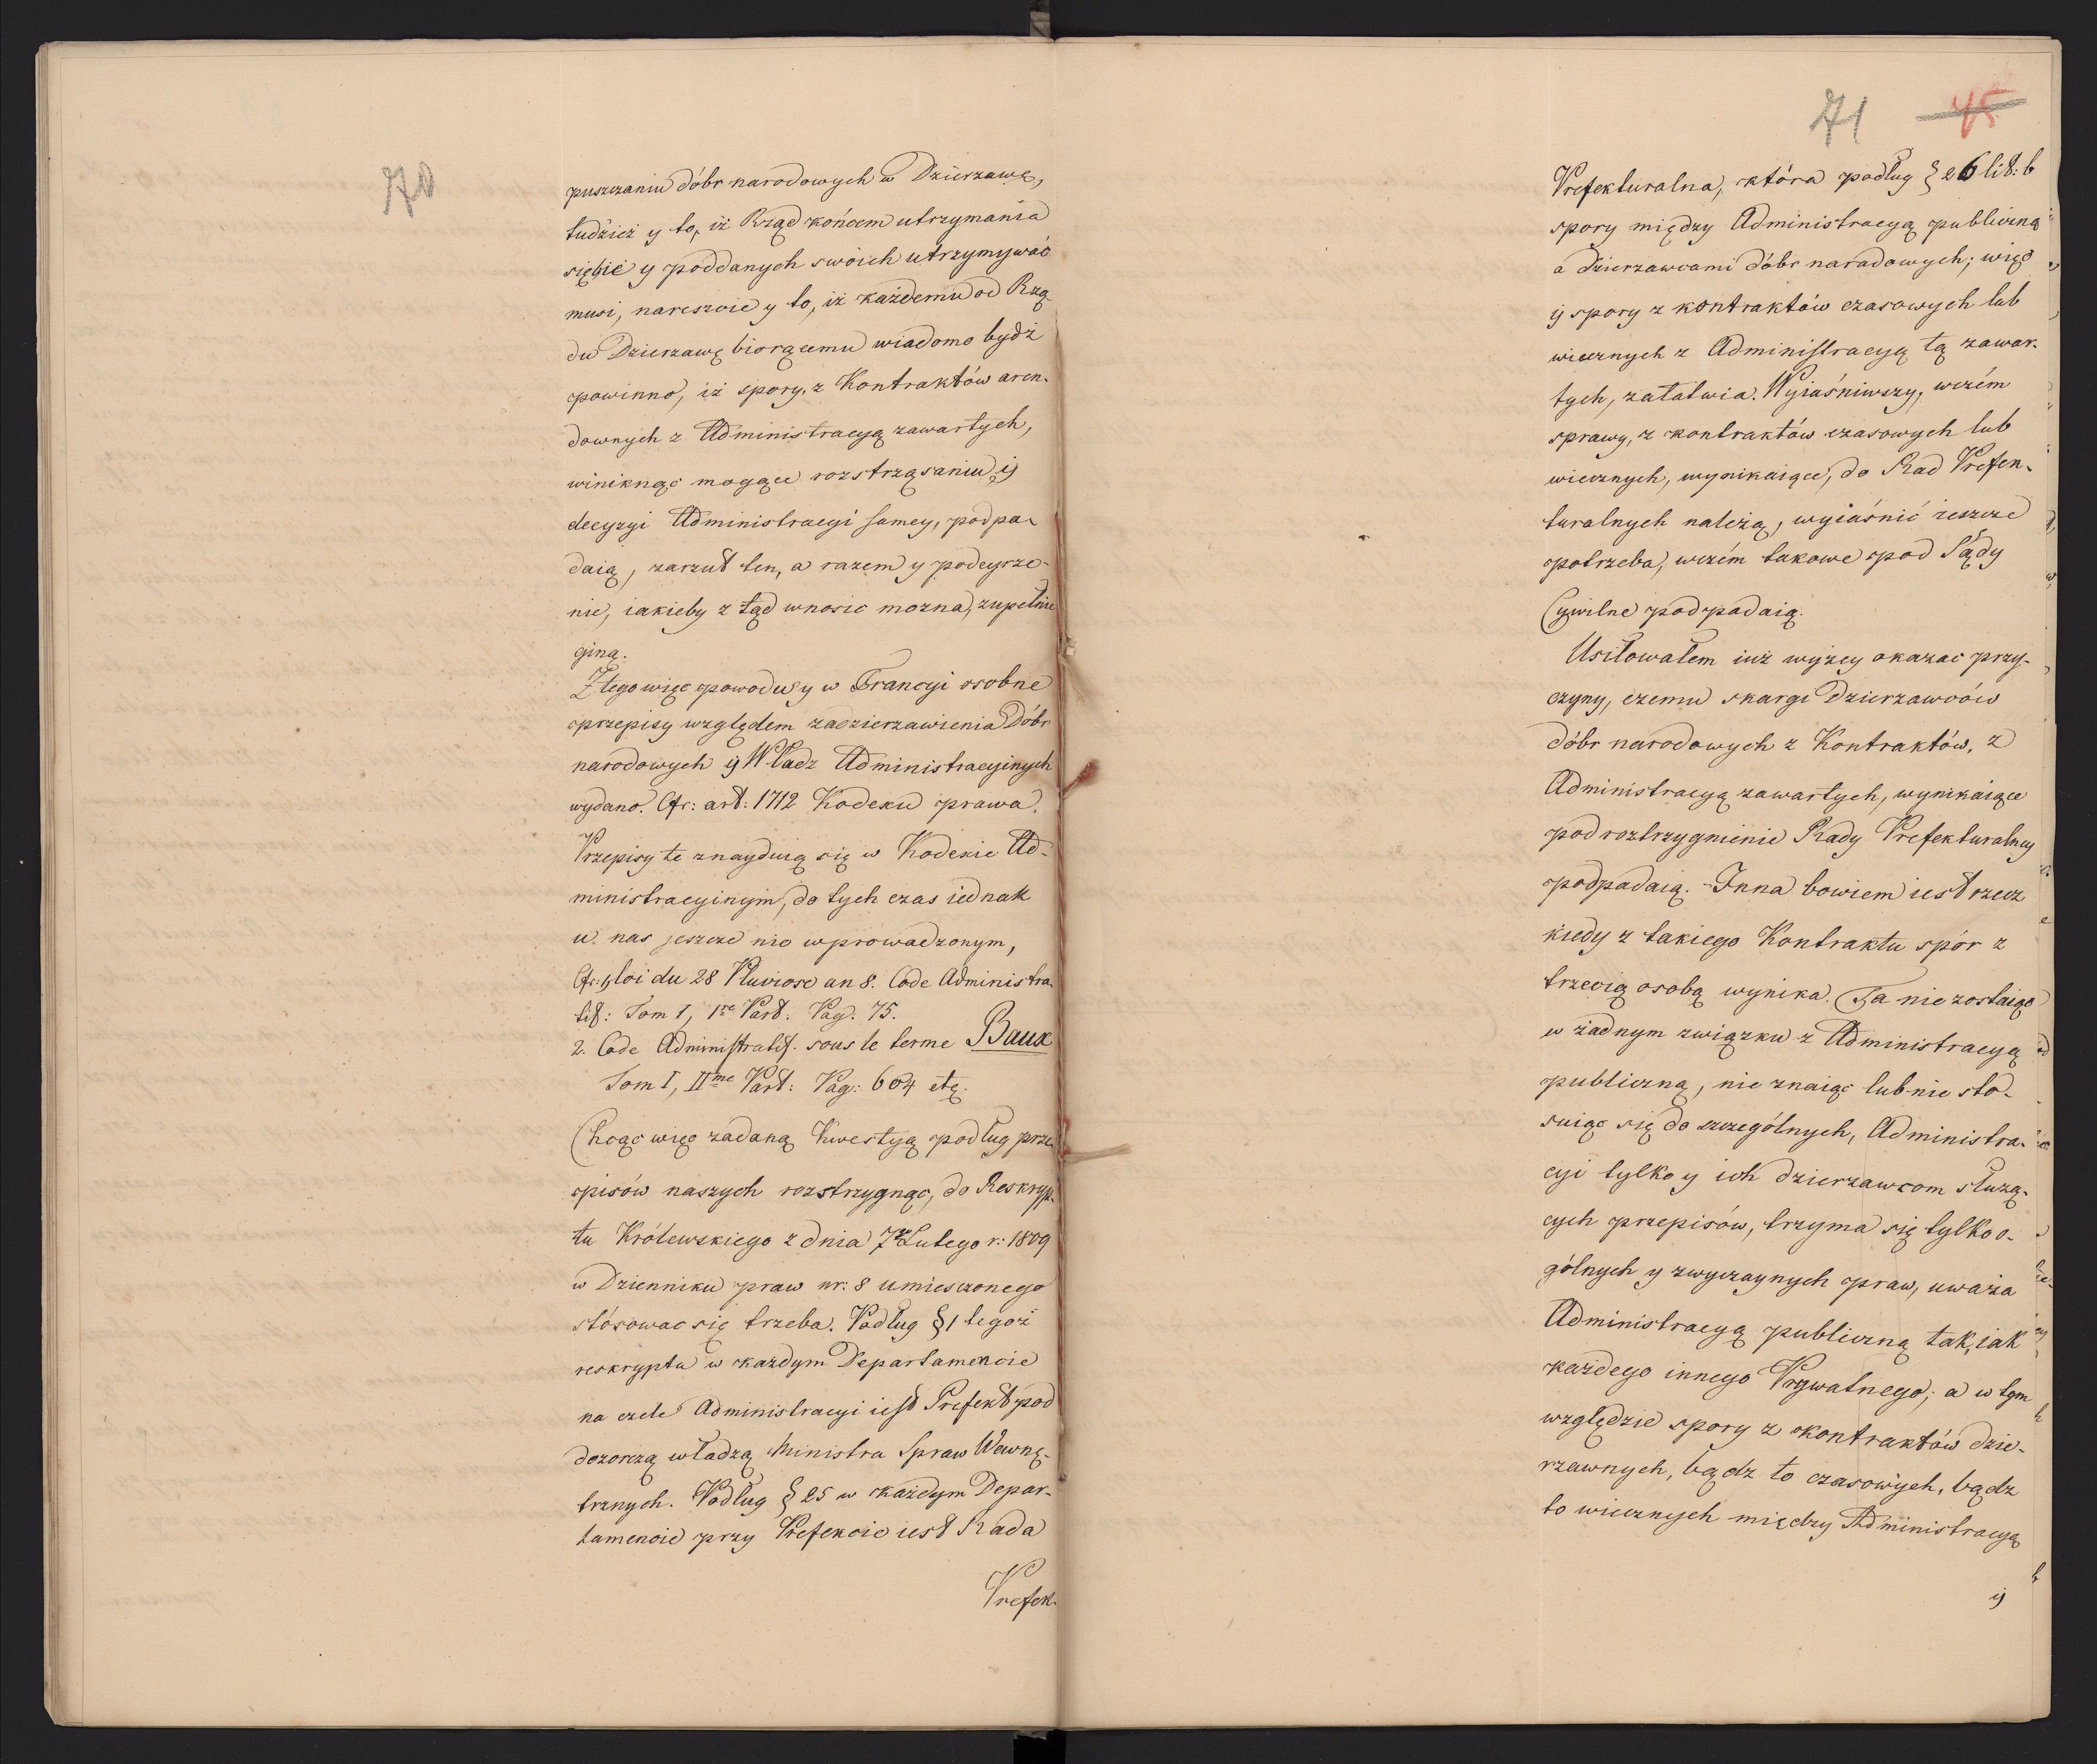 70
puszczaniu dóbr narodowych w Dzierzawę,
tudzież y to, iż Rząd końcem utrzymania
siębie y poddanych swoich utrzymywać
musi, nareszcie y to, iż każdemu od Rzą-
du Dzierzawę biorącemu wiadomo bydź
powinno, iż spory, z Kontraktów aren-
downych z Administracyą zawartych,
winiknąć mogące rozstrząsaniu ÿ
decyzyi Administracyi samey, podpa-
daią, zarzut ten, a razem y podeyrze-
nie, iakieby z tąd wnosić mozna, zupełnie
giną.
Z tego więc powodu y w Francyi osobne
przepisy względem zadzierzawienia Dóbr
narodowych ÿ Władz Administracyinych
wydano. Cfr: art: 1712 Kodexu prawa.
Przepisy te znayduią się w Kodexie Ad-
ministracyinym, do tych czas iednak
u nas jeszcze nie wprowadzonym,
Cfr: 1, loi du 28 Pluviose an 8. Code Administra-
tif: Tom 1, 1re Part. Pag: 75.
2. Code Administratif. sous le terme Baux
Tom I, IIme Part: Pag: 604 etc.
Chcąc więc zadaną Kwestyą podług prze-
pisów naszych rozstrzygnąć, do Reskryp-
tu Królewskiego z dnia 7go Lutego r: 1809
w Dzienniku praw nr: 8 umiesczonego
stósowac się trzeba. Podług § 1 tegoż
reskryptu w każdym Departamencie
na czele Administracyi iest Prefekt pod
dozorczą władzą Ministra Spraw Wewnę-
trznych. Podług § 25 w każdym Depar-
tamencie przy Prefekcie iest Rada
Prefek-
71 45
Prefekturalna, która podług § 26 lit: b
spory między Administracyą publiczną
a dzierzawcami dóbr naradowych; więc
ÿ spory z kontraktów czasowych lub
wiecznych z Administracyą tą zawar-
tych, załatwia. Wyiaśniwszy, wczém
sprawy, z kontraktów czasowych lub
wiecznych, wynikaiące, do Rad Prefek-
turalnych należą, wyiaśnić ieszcze
potrzeba, wczém takowe pod Sądy
Cywilne podpadaią.
Usiłowałem iuż wyżey okazac przy-
czyny, czemu skargi Dzierzawców
dóbr narodowych z Kontraktów, z
Administracyą zawartych, wynikaiące
pod roztrzygnienie Rady Prefekturalney
podpadaią. Inna bowiem iest rzecz
kiedy z takiego Kontraktu spór z
trzecią osobą wynika. Ta nie zostaiąc
w żadnym związku z Administracyą
publiczną, nie znaiąc lub nie sto-
suiąc się do szczególnych, Administra-
cyi tylko y ich dzierzawcom służą-
cych przepisów, trzyma się tylko o-
gólnych y zwyczaynych praw, uważa
Administracyą publiczną tak, iak
każdego innego Prywatnego; a w tym
względzie spory z kontraktów dzie-
rzawnych, bądz to czasowych, bądz
to wiecznych między Administracyą
ÿ